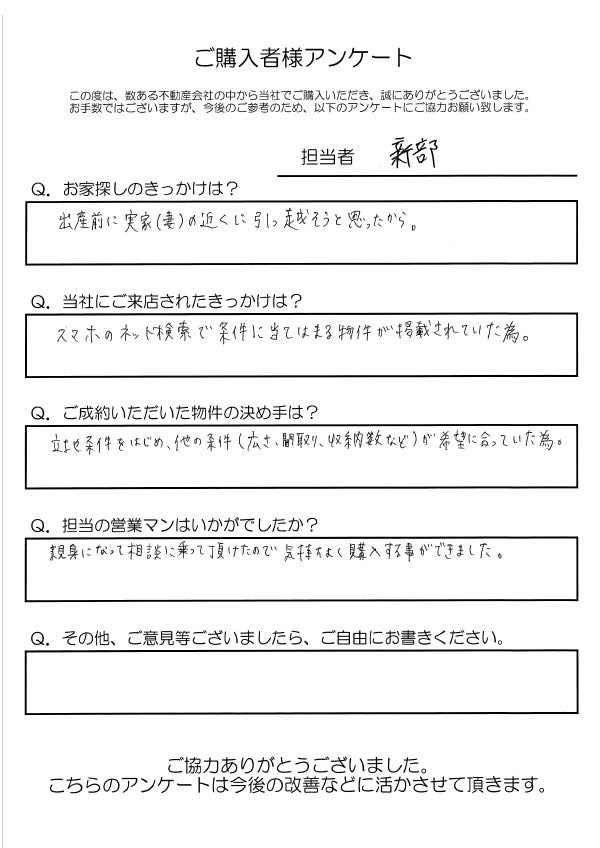 ご購入者様アンケート
この度は、数ある不動産会社の中から当社でご購入いただき、誠にありがとうございました。
お手数ではございますが、今後のご参考のため、以下のアンケートにご協力お願い致します。
担当者 新部
Q. お家探しのきっかけは？
出産前に実家(妻)の近くに引っ越そうと思ったから。
Q. 当社にご来店されたきっかけは？
スマホのネット検索で条件に当てはまる物件が掲載されていた為。
Q. ご成約いただいた物件の決め手は？
立地条件をはじめ、他の条件(広さ、間取り、収納数など)が希望に合っていた為。
Q. 担当の営業マンはいかがでしたか？
親身になって相談に乗って頂けたので気持ちよく購入する事ができました。
Q. その他、ご意見等ございましたら、ご自由にお書きください。
ご協力ありがとうございました。
こちらのアンケートは今後の改善などに活かさせて頂きます。